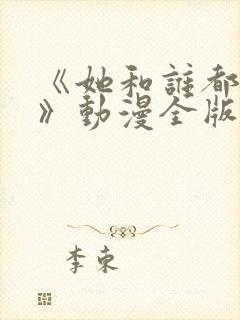 《她和誰都
》動漫全版
李東